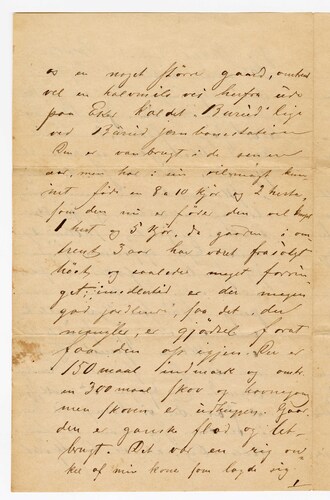 os en noget større gaard, omtrent
vel en halvmils vei herfra ude
paa Eker kaldet "Burud" lige
ved Burud jernbanestation
Den er vanbrugt i de senere
aar, men har i sin velmagt kun
net føde en 8 a 10 kjør og 2 heste,
som den nu er føder den vel knapt
1 hest og 5 kjør, da gaarden i om
trent 3 aar har været frasolgt
høet og saaledes meget forrin
get; imidlertid er der megen
god jordbund, saa det der
mangler, er gjødsel forat
faa den op igjen. Den er
150 maal indmark og omtr.
en 300 maal skov og havnegang
men skoven er udhuggen. Gaar
den er ganske flad og let
brugt. Det var en rig on
kel af min kone som lagde sig